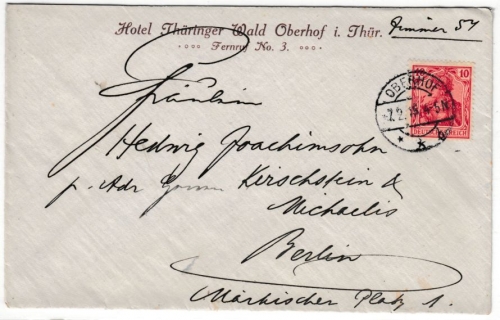 Hotel Thüringer Wald Oberhof i. Thür.
Fernruf No. 3.
Zimmer 54
10
OBERHOF
7.2.
DEUTSCHES REICH
Fräulein
Hedwig Joachimsohn
p. Adr Kirschstein &
Michaelis
Berlin
Märkischer Platz 1.